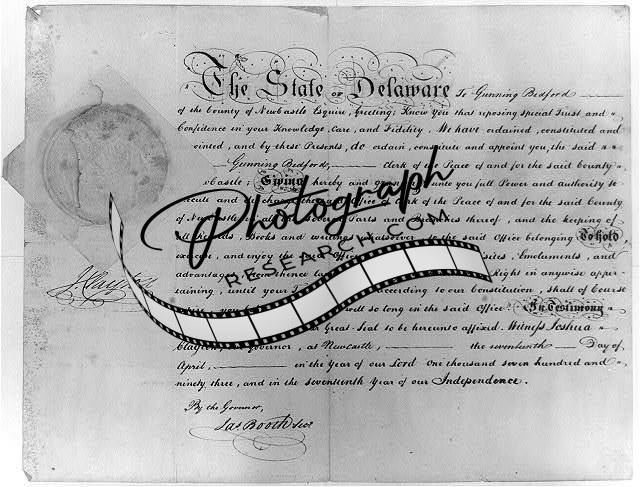 The State of Delaware To Gunning Bedford
of the County of Newcastle Esquire, Greeting; Know You that reposing special Trust and
Confidence in your Knowledge, Care, and Fidelity, We have ordained, constituted and
ointed, and by these Presents, do ordain, constitute and appoint you, the said
Gunning Bedford, Clerk of the Peace of and for the said County
wcastle; Giving hereby and unto you full Power and authority to
cute and Office of clerk of the Peace of and for the said County
of Newcastle, Parts and Branches thereof, and the keeping of
Books and writings whatsoever to the said Office belonging To hold,
exercise, and enjoy the said Emoluments, and
advantages Right in anywise apper-
taining, until your according to our Constitution, shall of Course
well so long in the said Office In Testimony
Great Seal to be hereunto affixed. Witness Joshua
Clayton, Governor, at Newcastle, the seventeenth Day of
April, in the Year of our Lord One thousand seven hundred and
ninety three, and in the seventeenth Year of our Independence.
J. Clayton
By the Governor,
Jas. Booth Secy
Photograph
RESEARCH.COM